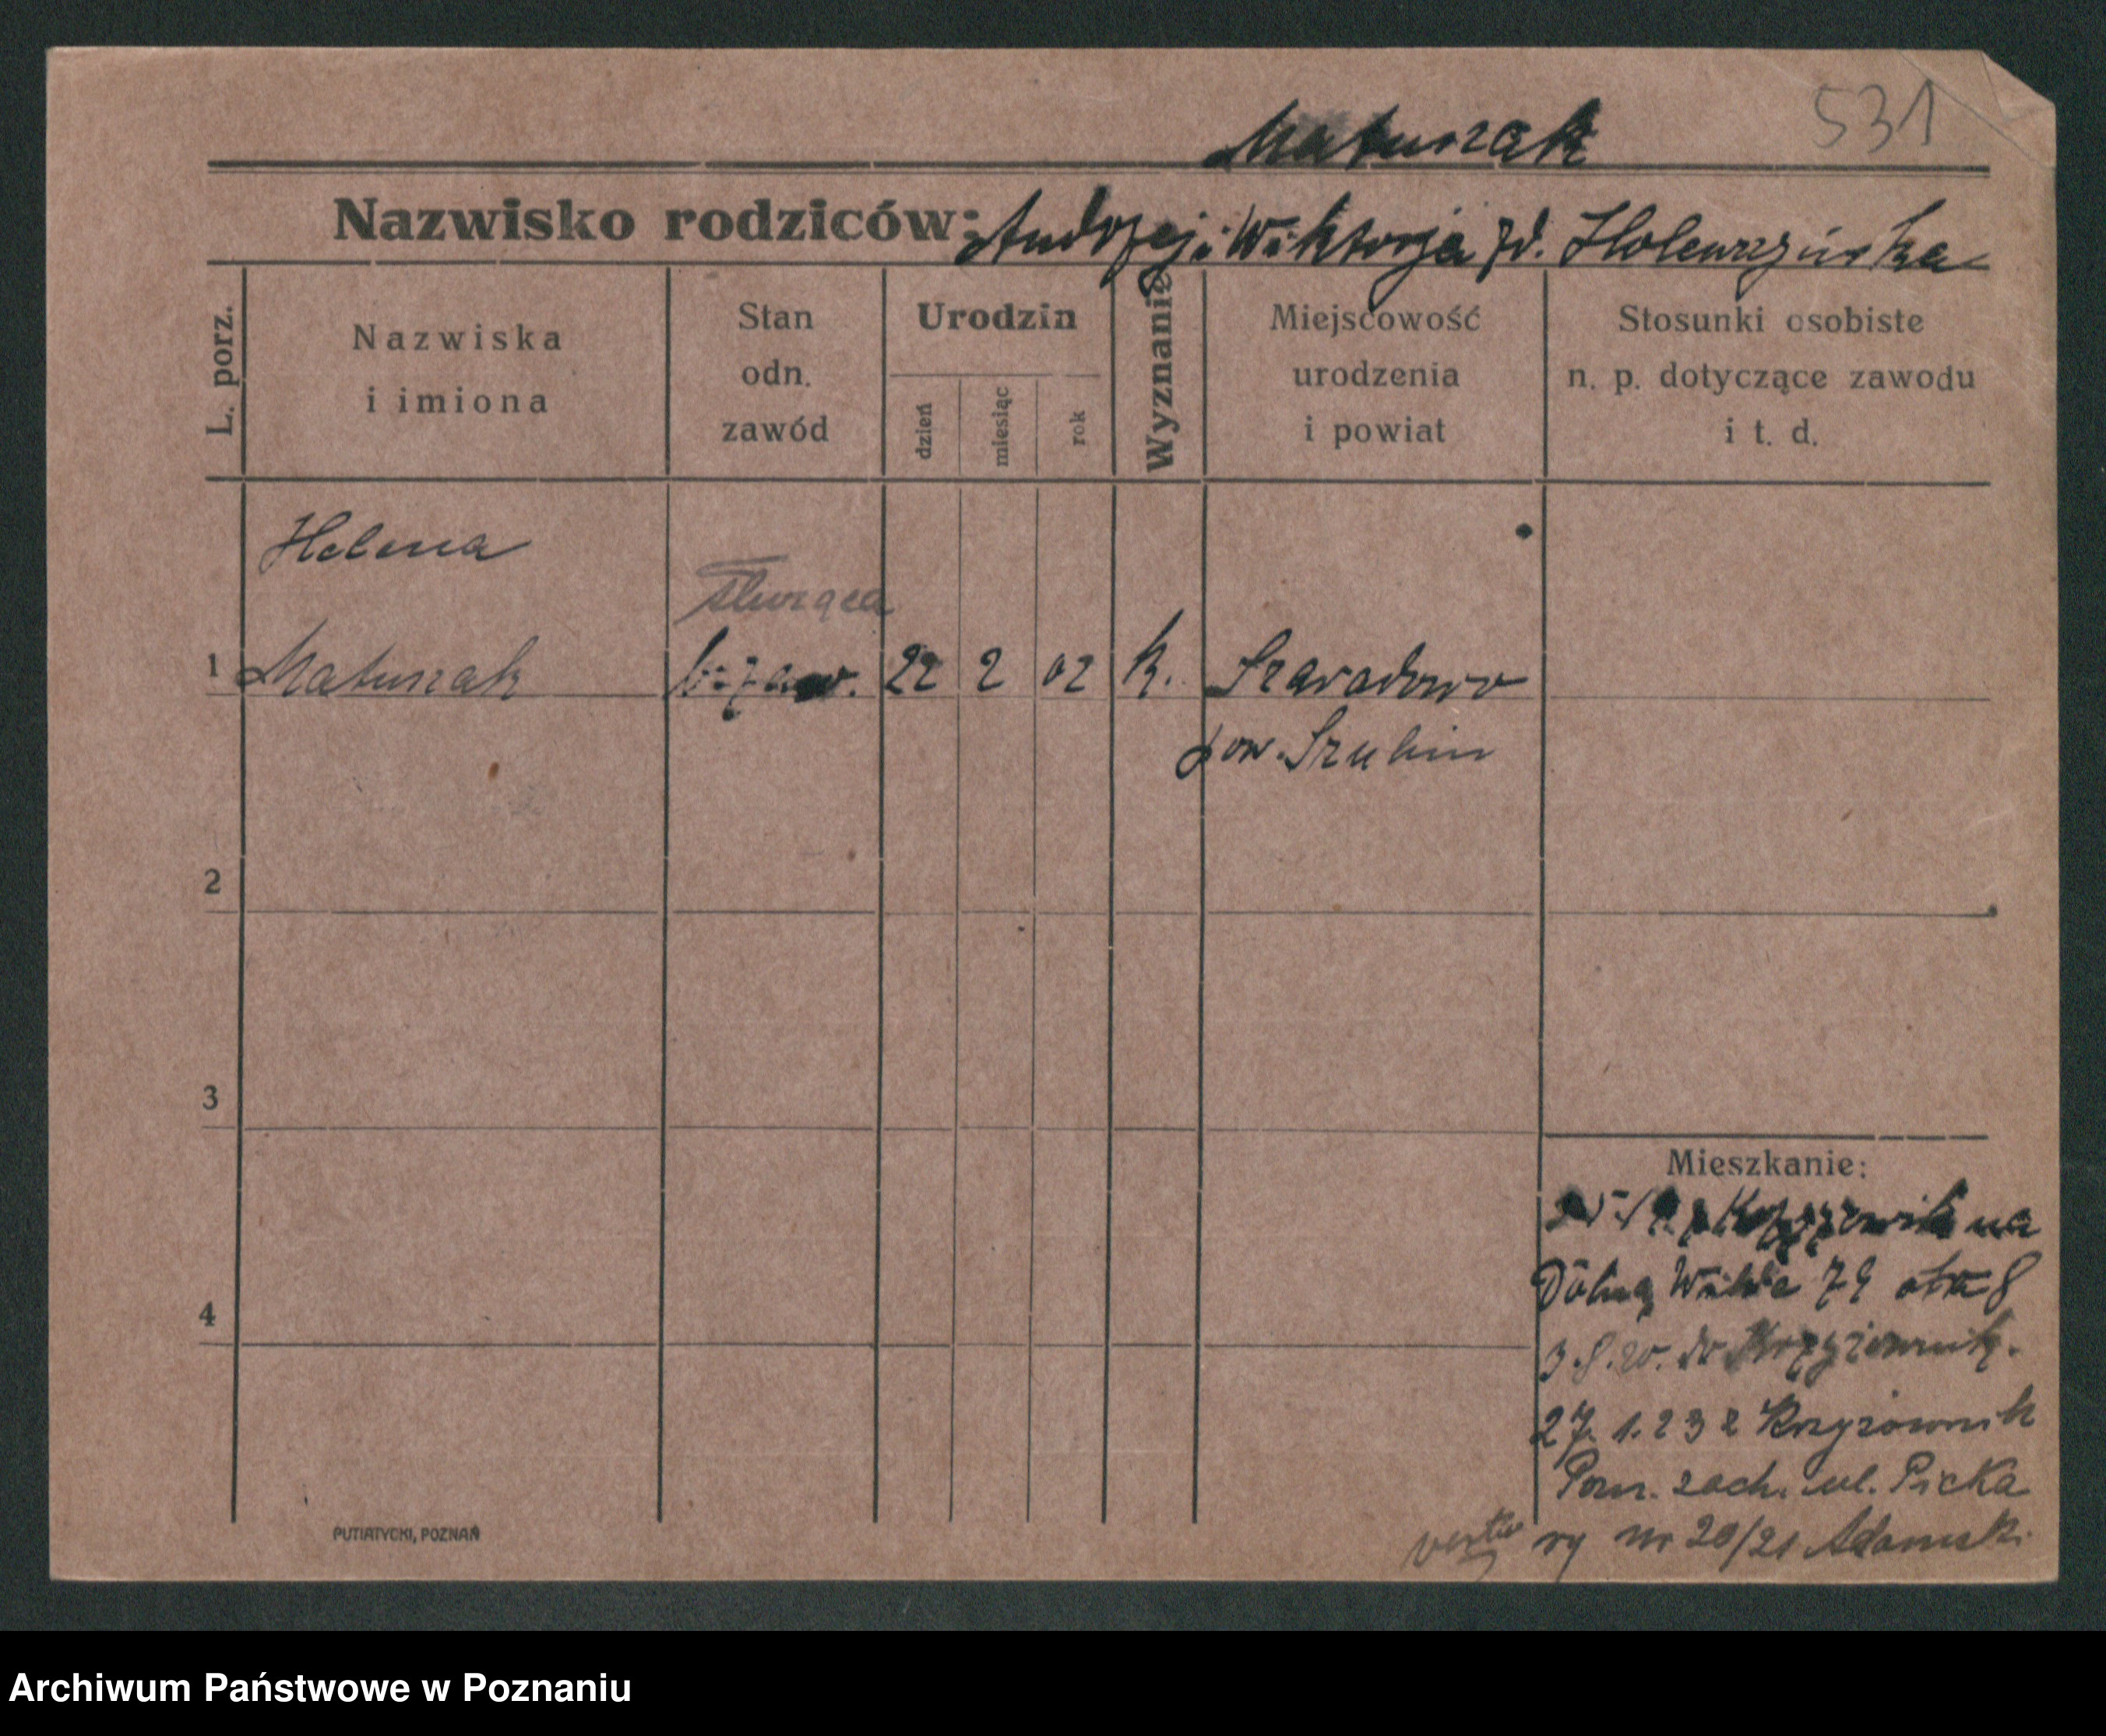 531
Matuszak
Nazwisko rodziców: Andrzej i Wiktorja zd. Holewczyńska
L. porz.
Nazwiska i imiona
Stan odn. zawód
Urodzin
dzień
miesiąc
rok
Wyznanie
Miejscowość urodzenia i powiat
Stosunki osobiste n. p. dotyczące zawodu i t. d.
Helena
służąca
1 Matuszak b. zaw. 22 2 02 k. Szaradowo
pow. Szubin
2
3
Mieszkanie:
na
Dolną Wilde 79
4
do Krzyżownik.
27. 1. 232 Krzyżownik
Pozn. zach. ul. Pieka
ry nr 20/21 Adamski
verte
PUTIATYCKI, POZNAŃ
Archiwum Państwowe w Poznaniu